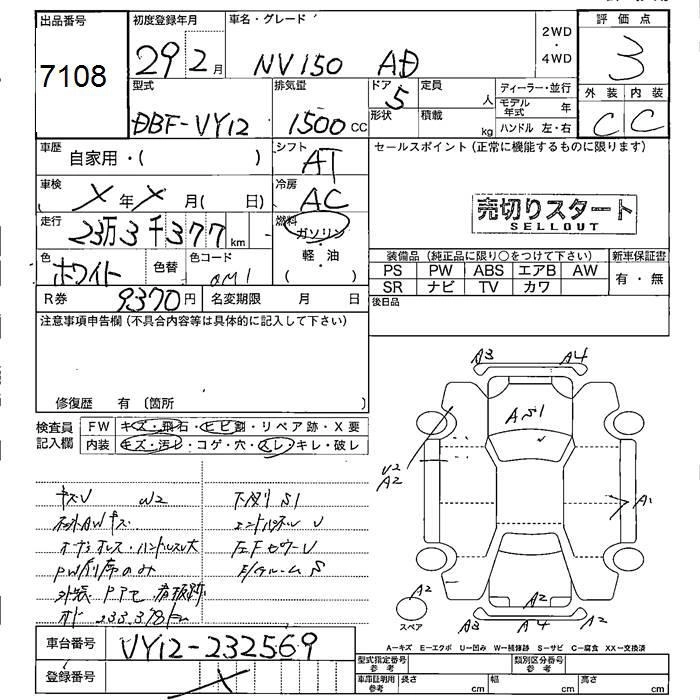 出品番号
7108
初度登録年月
29 2月
車名・グレード
NV150 AD
2WD
・
4WD
評価点
3
外装 内装
C C
型式
DBF-VY12
排気量
1500cc
ドア
5
形状
定員
人
積載
kg
ディーラー・並行
モデル年式 年
ハンドル 左・右
車歴
自家用・( )
シフト
AT
セールスポイント(正常に機能するものに限ります)
車検
X年X月( 日)
冷房
AC
売切りスタート
SELLOUT
走行
23万3千377km
燃料
ガソリン
・
軽・油
色
ホワイト
色替
色コード
QM1
装備品(純正品に限り○をつけて下さい)
新車保証書
PS PW ABS エアB AW
SR ナビ TV カワ
有・無
R券
9370円
名変期限 月 日
後日品
注意事項申告欄(不具合内容等は具体的に記入して下さい)
修復歴 有 〔箇所
検査員記入欄
FW キズ・飛石・ヒビ割・リペア跡・X要
内装 キズ・汚レ・コゲ・穴・スレ・キレ・破レ
A3 A4
AS1
U2
A2
A1
A2
A2
A3 A4 A2
スペア
キズU W2
下廻りS1
エンドパネルU
PW前席のみ
左Fピラー U
E/GルームS
外装 PPて 看板跡
233.378km
A-キズ E-エクボ U-凹み W-補修跡 S-サビ C-腐食 XX-交換済
車台番号
VY12-232569
登録番号
X
型式指定番号
参考
類別区分番号
参考
車庫証明用
参考
長さ cm
幅 cm
高さ cm